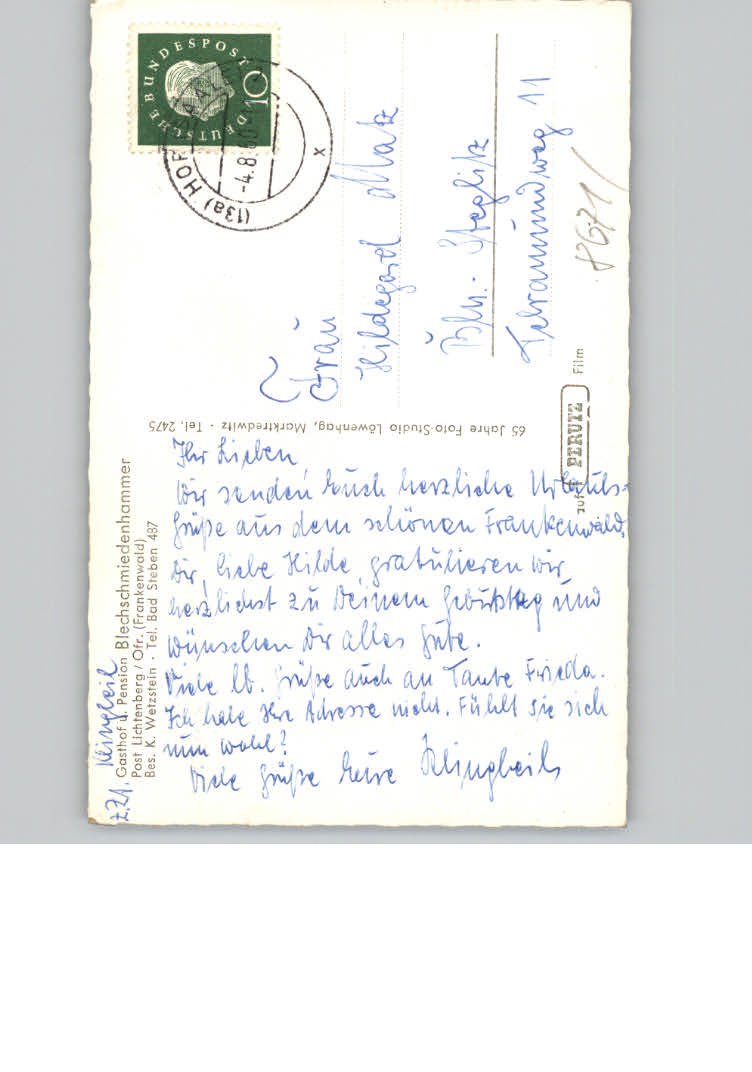 z.Zt. Klingbeil
Gasthof u. Pension Blechschmiedenhammer
Post Lichtenberg / Ofr. (Frankenwald)
Bes. K. Wetzstein · Tel. Bad Steben 487
Ihr Lieben,
Wir senden Euch herzliche Urlaubs-
grüße aus dem schönen Frankenwald.
Dir, liebe Hilde, gratulieren wir
herzlichst zu Deinem Geburtstag und
wünschen Dir alles Gute.
Viele lb. Grüße auch an Tante Frieda.
Ich habe Ihre Adresse nicht. Fühlt sie sich
nun wohl?
Viele Grüße Eure Klingbeils
65 Jahre Foto-Studio Löwenhag, Marktredwitz · Tel. 2475
auf PERUTZ Film
DEUTSCHE BUNDESPOST
10
(13a) HOF
-4.8.60
x
Frau
Hildegard Matz
Bln.-Steglitz
Telramundweg 11
8671/